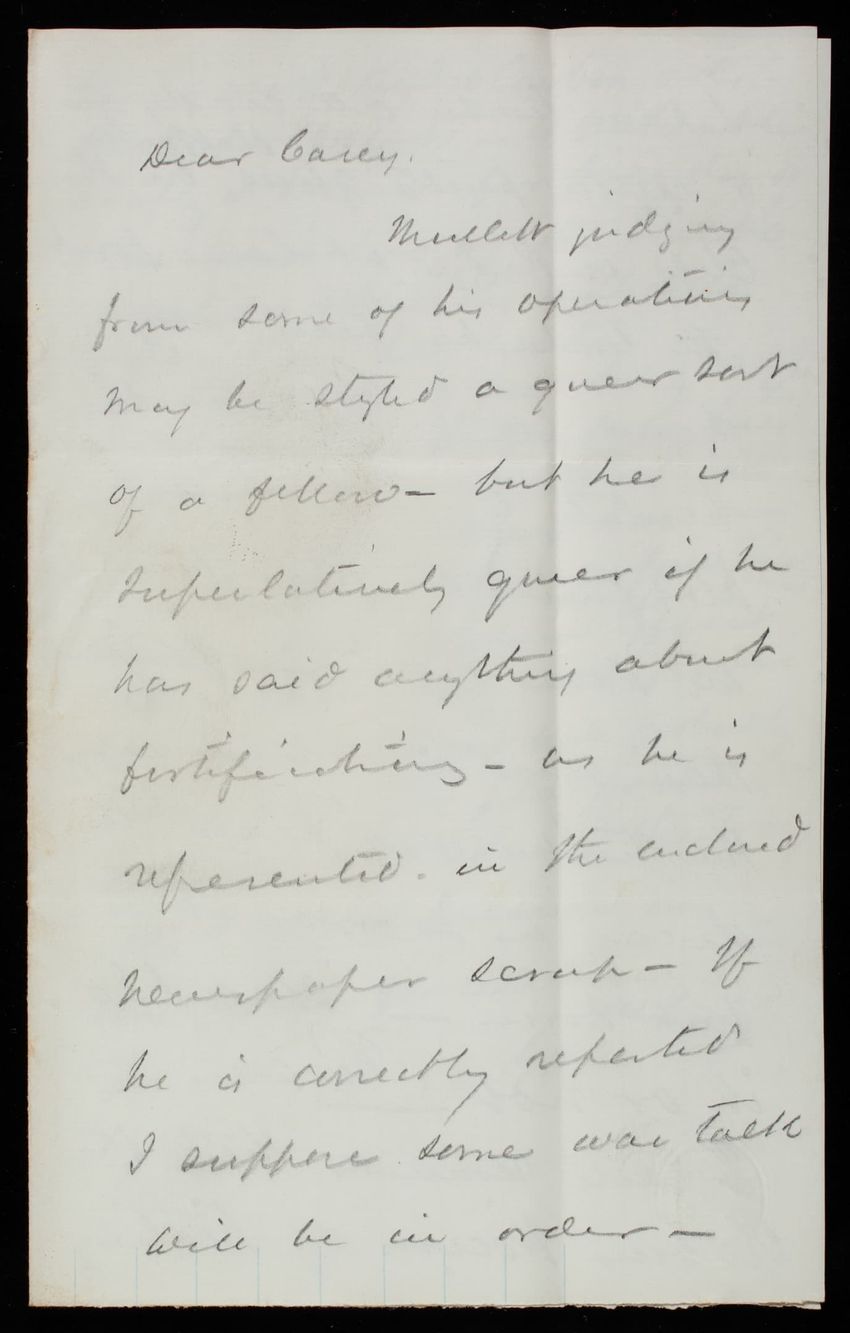 Dear Casey.
Mullett judging
from some of his operations
may be styled a queer sort
of a fellow – but he is
superlatively queer if he
has said anything about
fortifications – as he is
represented. in the enclosed
newspaper scrap – If
he is correctly reported
I suppose some war talk
will be in order –